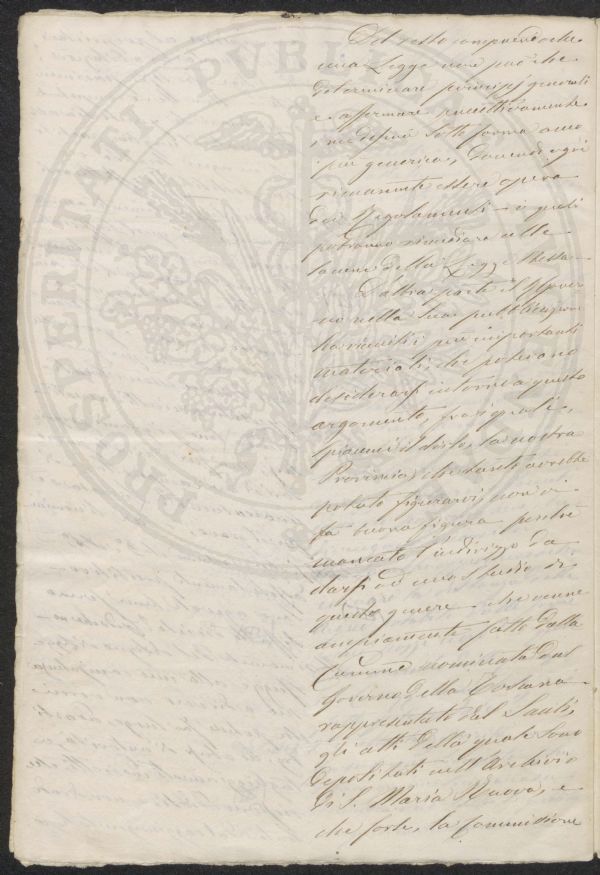 Del resto comprendo che
una Legge non può che
determinare principj generali
e affermare
i medesimi sotto forma
più generica, dovendo ogni
rimanente essere opera
dei Regolamenti i quali
potranno rimediare alle
lacune della Legge stessa.
D'altra parte il Gover
no nella sua pubblicazione
ha riuniti i più importanti
materiali che potevano
desiderarsi intorno a questo
argomento, fra i quali,
spiacemi il dirlo, la nostra
Provincia, che tanto avrebbe
potuto figurarvi, non vi
fa buona figura perchè
mancato l'indirizzo da
darsi ad uno studio di
questo genere che venne
ampiamente fatto dalla
nominata dal
Governo della Toscana
rappresentato dal
gli atti della quale sono
depositati nell'Archivio
di S. Maria Nuova, e
che forse, la Commissione
PROSPERITATI PVBLICAE